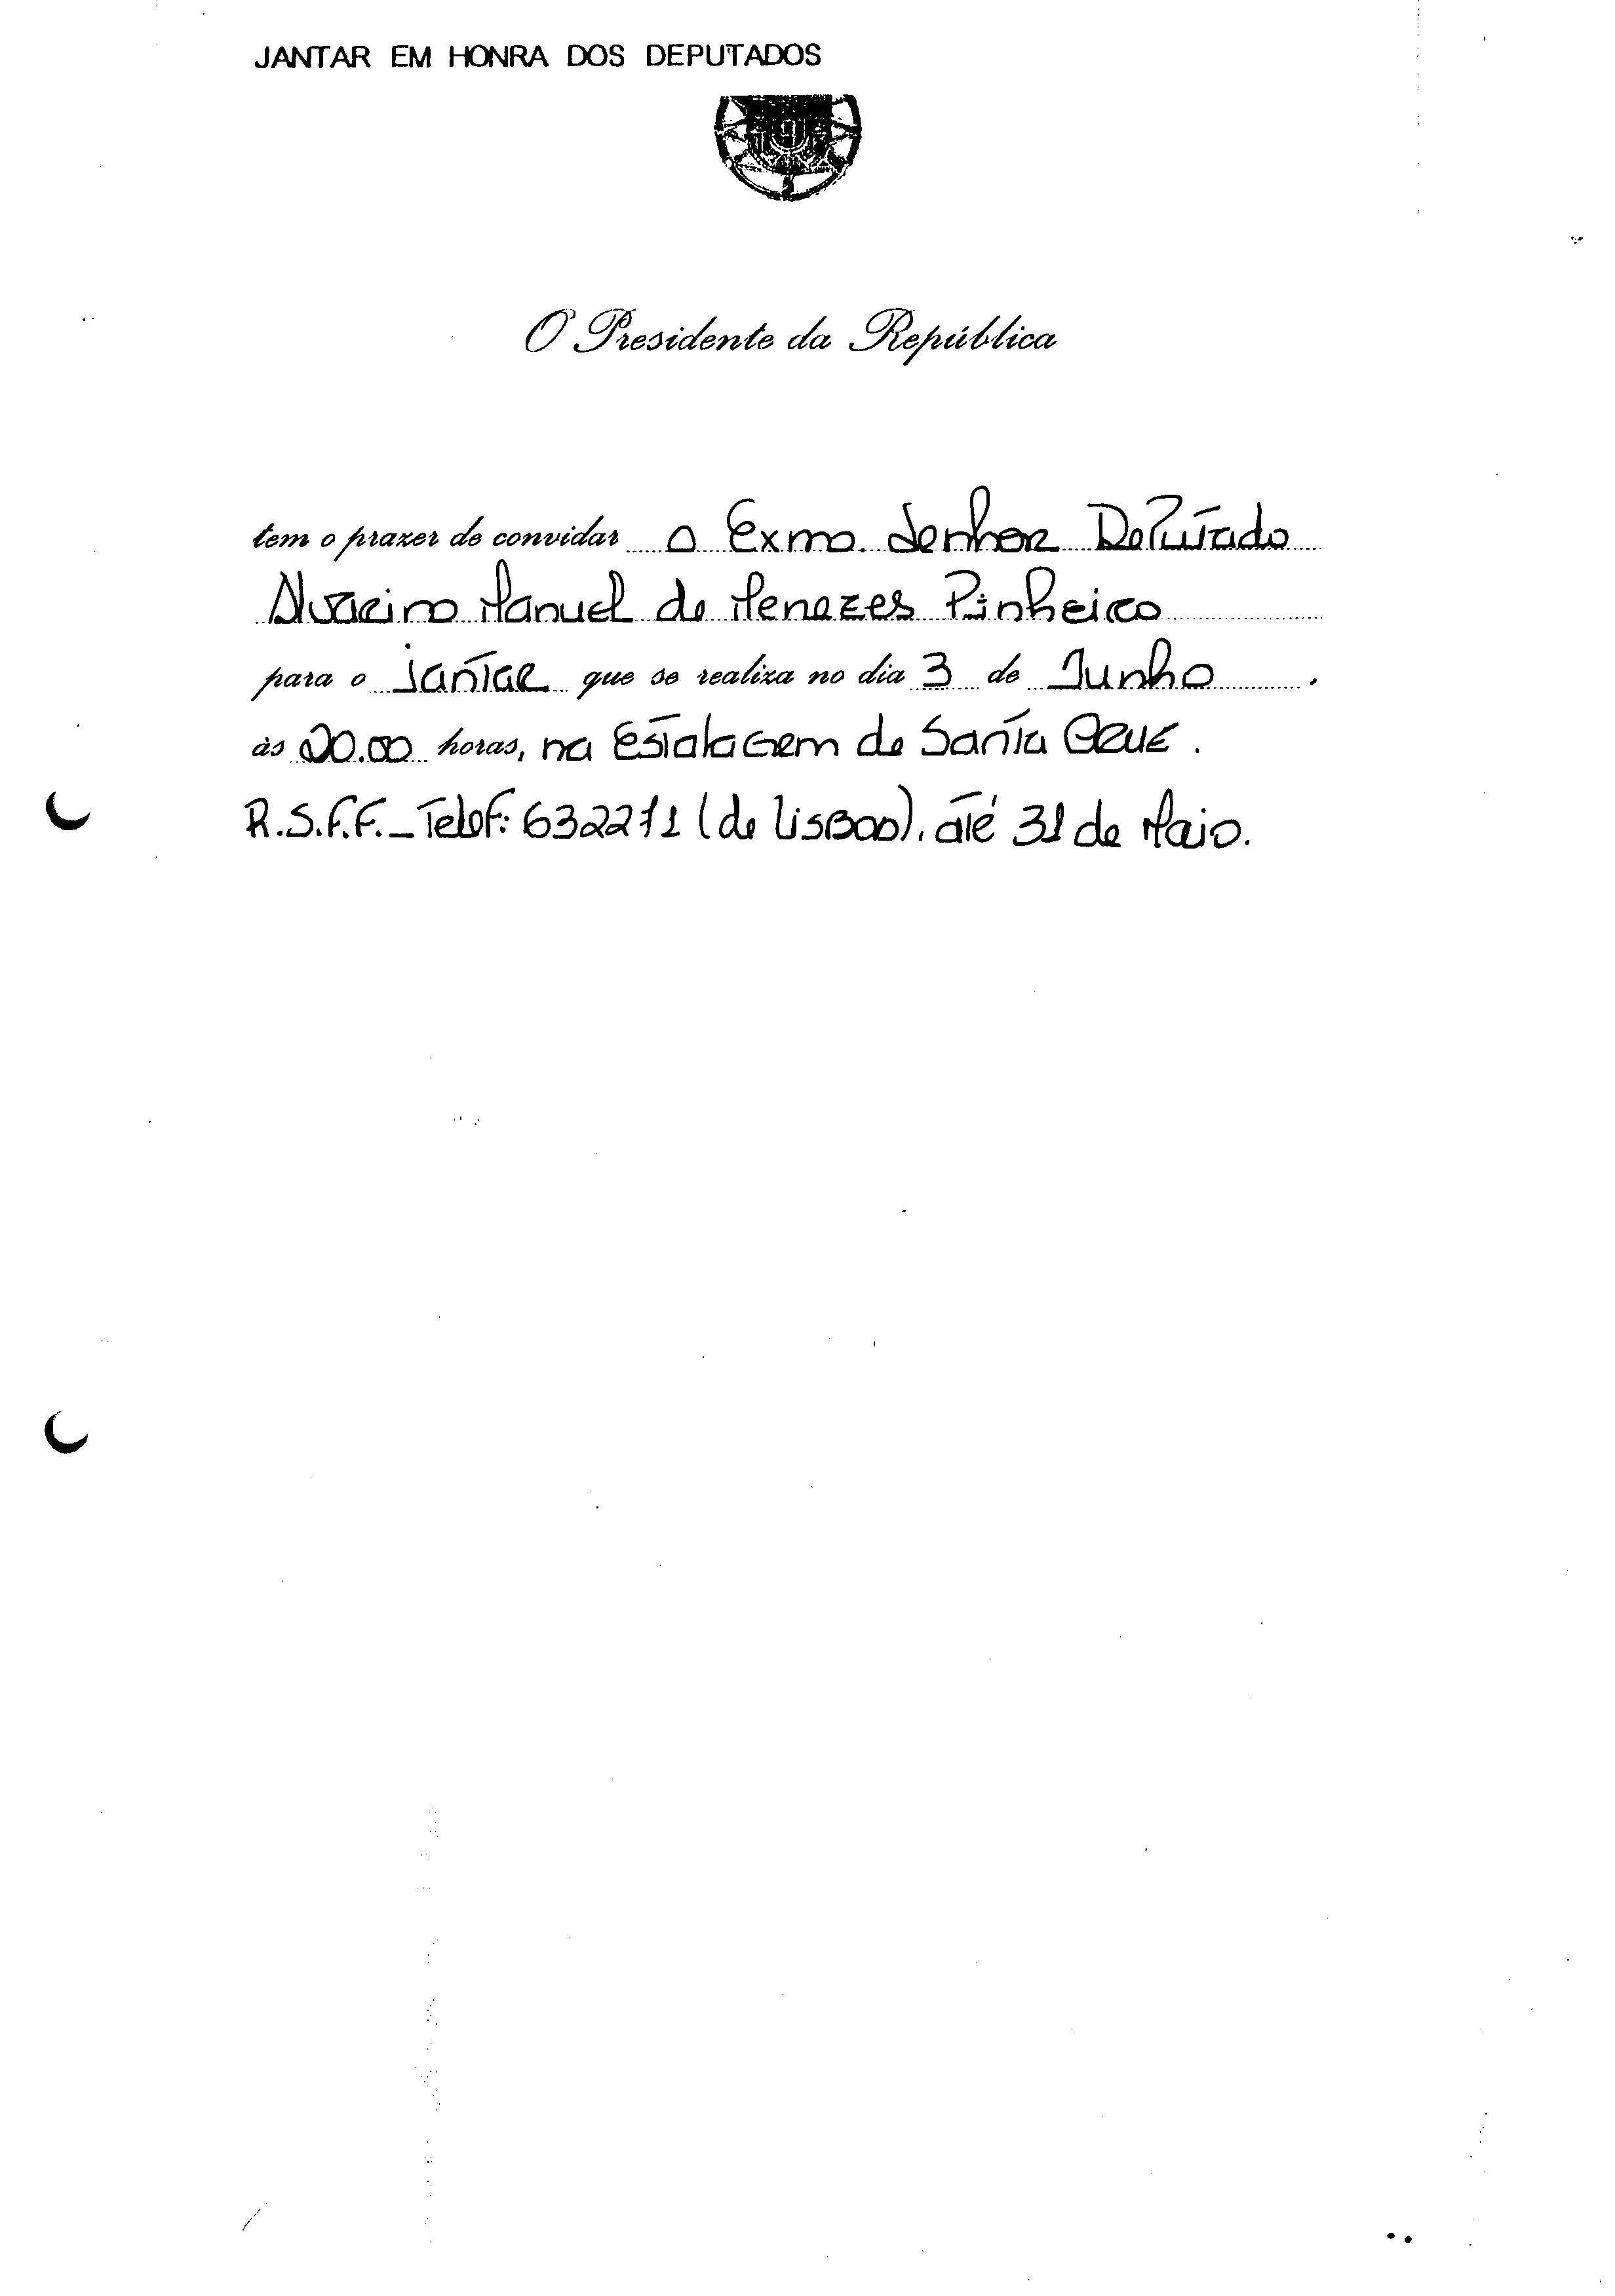 JANTAR EM HONRA DOS DEPUTADOS
O Presidente da República
tem o prazer de convidar o Exmo. Senhor Deputado
Manuel de Menezes Pinheiro
para o jantar que se realiza no dia 3 de Junho .
às 20.00 horas, na Estalagem de Santa Cruz.
R.S.F.F. - Telef: 632271 (de Lisboa), até 31 de Maio.